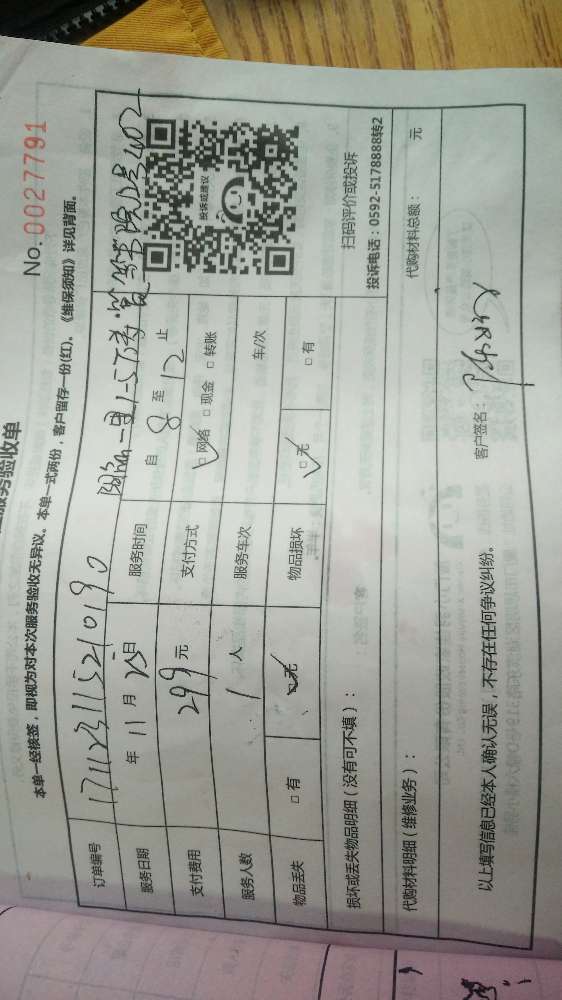 服务验收单
No. 0027791
本单一经核签，即视为对本次服务验收无异议。本单一式两份，客户留存一份(红)。《维保须知》详见背面。
订单编号 171123115210190
服务日期 年 11 月 25 日 服务时间 自 8 至 12 止
支付费用 299 元 支付方式 ☑ 网络 □ 现金 □ 转账
服务人数 1 人 服务车次 车/次
物品丢失 □ 有 ☑ 无 物品损坏 ☑ 无 □ 有
投诉或建议
扫码评价或投诉
投诉电话：0592-5178888转2
损坏或丢失物品明细（没有可不填）：
代购材料明细（维修业务）： 代购材料总额： 元
以上填写信息已经本人确认无误，不存在任何争议纠纷。 客户签名：